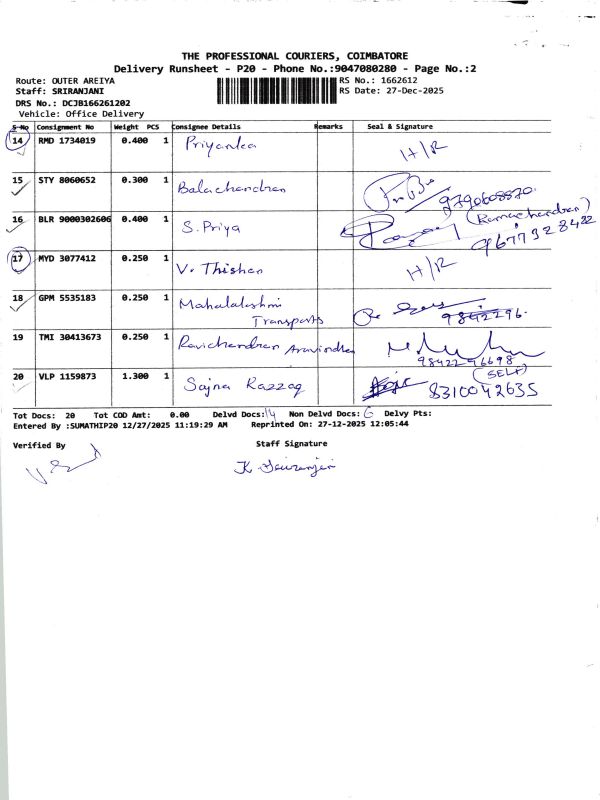 THE PROFESSIONAL COURIERS, COIMBATORE
Delivery Runsheet - P20 - Phone No.:9047080280 - Page No.:2
Route: OUTER AREIYA
RS No.: 1662612
Staff: SRIRANJANI
RS Date: 27-Dec-2025
DRS No.: DCJB166261202
Vehicle: Office Delivery
S-No Consignment No Weight PCS Consignee Details Remarks Seal & Signature
14 RMD 1734019 0.400 1 Priyanka H/R
15 STY 8060652 0.300 1 Balachandran 9790608870
16 BLR 9000302606 0.400 1 S. Priya (Ramachandran) 9677328422
17 MYD 3077412 0.250 1 V. Thishan H/R
18 GPM 5535183 0.250 1 Mahalakshmi Transports
19 TMI 30413673 0.250 1 Ravichandran Aravindhan 9842296698
20 VLP 1159873 1.300 1 Sajna Razzaq (SELF) 8310042635
Tot Docs: 20 Tot COD Amt: 0.00 Delvd Docs: 14 Non Delvd Docs: 6 Delvy Pts:
Entered By :SUMATHIP20 12/27/2025 11:19:29 AM Reprinted On: 27-12-2025 12:05:44
Verified By Staff Signature